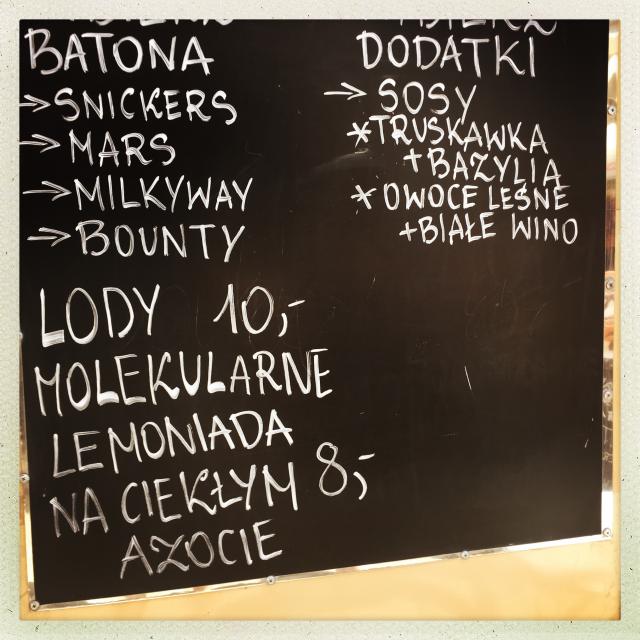 BATONA
→ SNICKERS
→ MARS
→ MILKYWAY
→ BOUNTY
DODATKI
→ SOSY
* TRUSKAWKA
+ BAZYLIA
* OWOCE LEŚNE
+ BIAŁE WINO
LODY 10,-
MOLEKULARNE
LEMONIADA
NA CIEKŁYM 8,-
AZOCIE